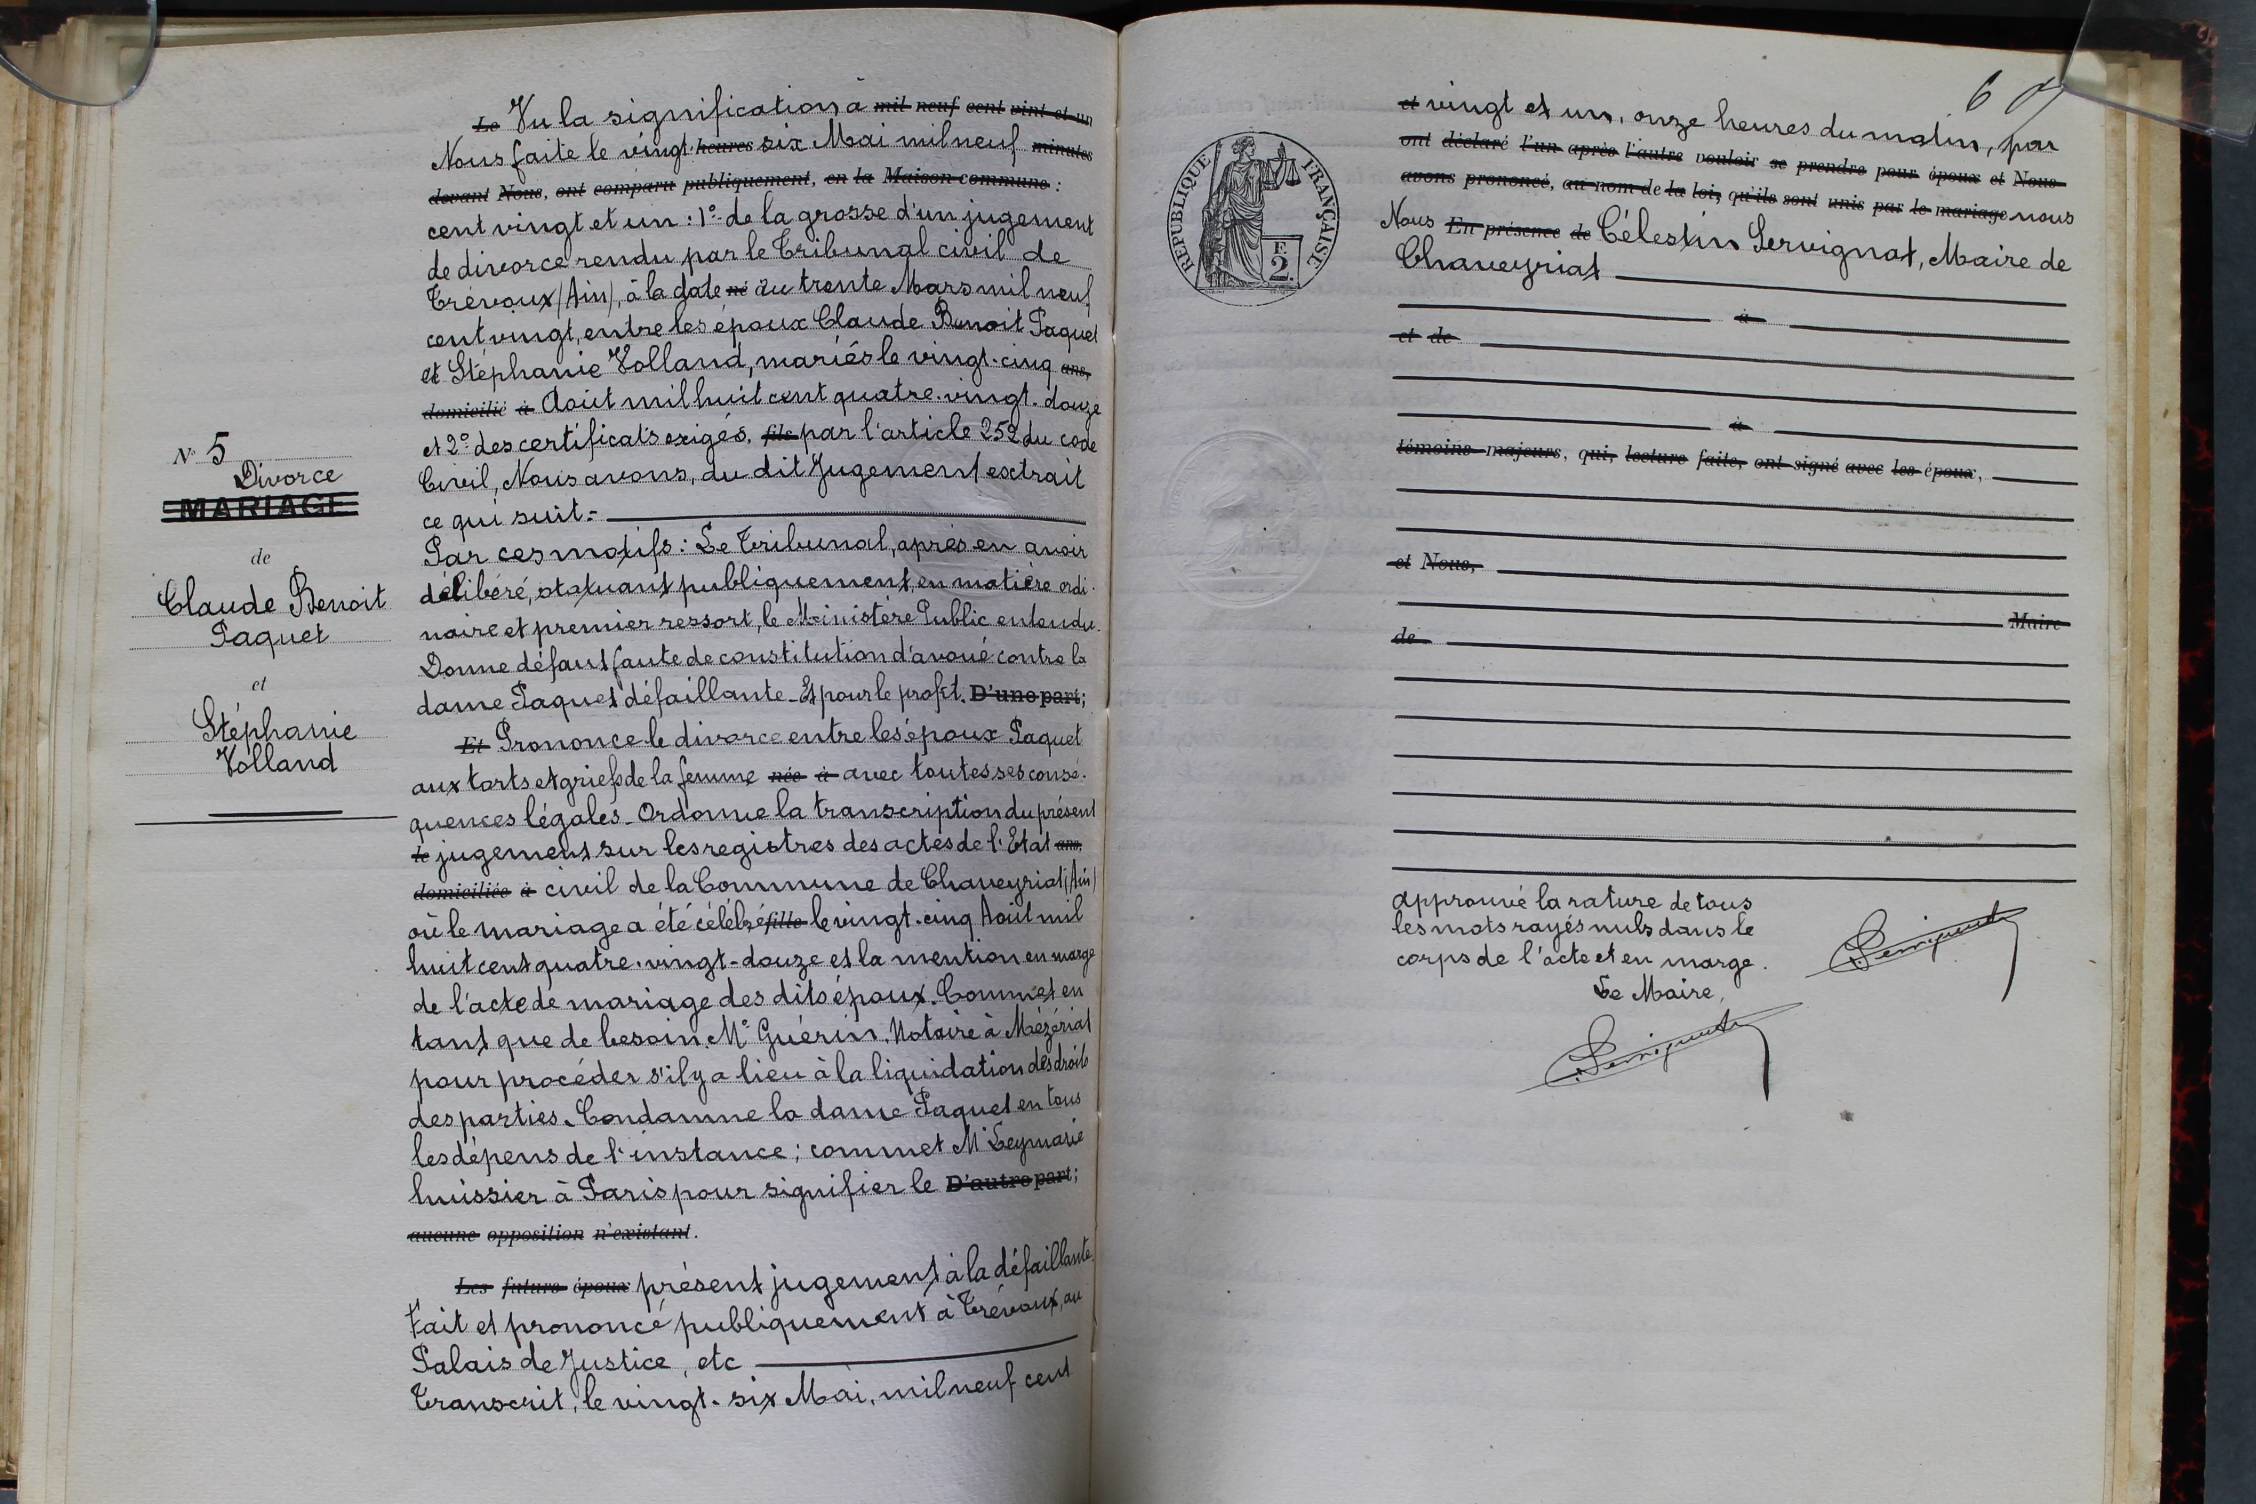 N° 5
Divorce
MARIAGE
de
Claude Benoit
Paquet
et
Stéphanie
Volland
Le Vu la signification à mil neuf cent vint et un
Nous faite le vingt heures six Mai mil neuf minutes
devant Nous, ont comparu publiquement, en la Maison commune :
cent vingt et un : 1° de la grosse d'un jugement
de divorce rendu par le Tribunal civil de
Trévoux (Ain), à la date né du trente Mars mil neuf
cent vingt, entre les époux Claude Benoit Paquet
et Stéphanie Volland, mariés le vingt-cinq ans,
domicilié à Août mil huit cent quatre-vingt-douze
et 2° des certificats exigés, fils par l'article 252 du code
Civil, Nous avons, du dit Jugement extrait
ce qui suit :
Par ces motifs : Le Tribunal, après en avoir
délibéré, statuant publiquement, en matière ordi-
naire et premier ressort, le Ministère Public entendu.
Donne défaut faute de constitution d'avoué contre la
dame Paquet défaillante _ Et pour le profit. D'une part;
Et Prononce le divorce entre les époux Paquet
aux torts et griefs de la femme née à avec toutes ses consé-
quences légales _ Ordonne la transcription du présent
le jugement sur les registres des actes de l'Etat ans,
domiciliée à civil de la Commune de Chaveyriat (Ain)
où le mariage a été célébré fille le vingt-cinq Août mil
huit cent quatre-vingt-douze et la mention en marge
de l'acte de mariage des dits époux. Commet en
tant que de besoin, Me Guérin, Notaire à Mézériat
pour procéder s'il y a lieu à la liquidation des droits
des parties. Condamne la dame Paquet en tous
les dépens de l'instance ; commet Me Leymarie
huissier à Paris pour signifier le D'autre part;
aucune opposition n'existant.
Les futurs époux présent jugement à la défaillante.
Fait et prononcé publiquement à Trévoux, au
Palais de Justice, etc
Transcrit, le vingt-six Mai, mil neuf cent
6
RÉPUBLIQUE FRANÇAISE
E.
2.
et vingt et un, onze heures du matin, par
ont déclaré l'un après l'autre vouloir se prendre pour époux et Nous
avons prononcé, au nom de la loi, qu'ils sont unis par le mariage nous
Nous En présence de Célestin Servignat, Maire de
Chaveyriat
à
et de
à
témoins majeurs, qui, lecture faite, ont signé avec les époux,
et Nous,
Maire
de
approuvé la rature de tous
les mots rayés nuls dans le
corps de l'acte et en marge.
Le Maire,